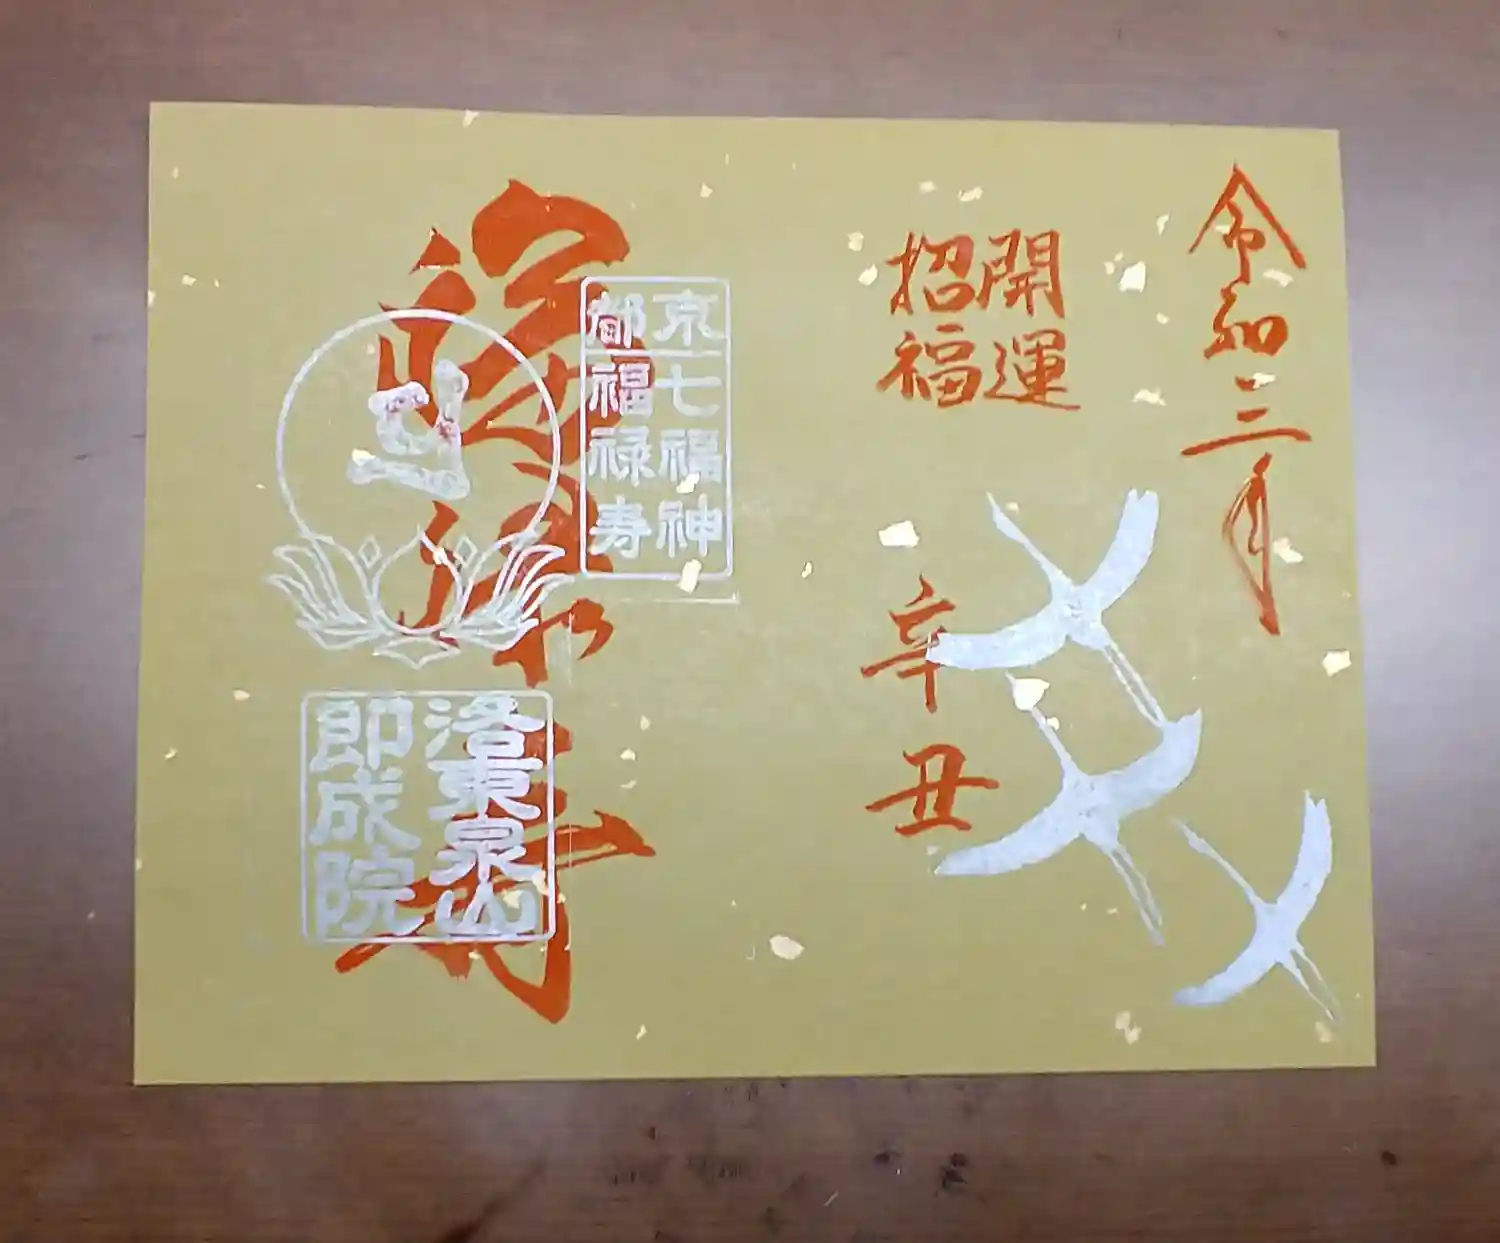 令和三年
開運
招福
辛丑
京都
七福神
福禄寿
洛東泉山
即成院